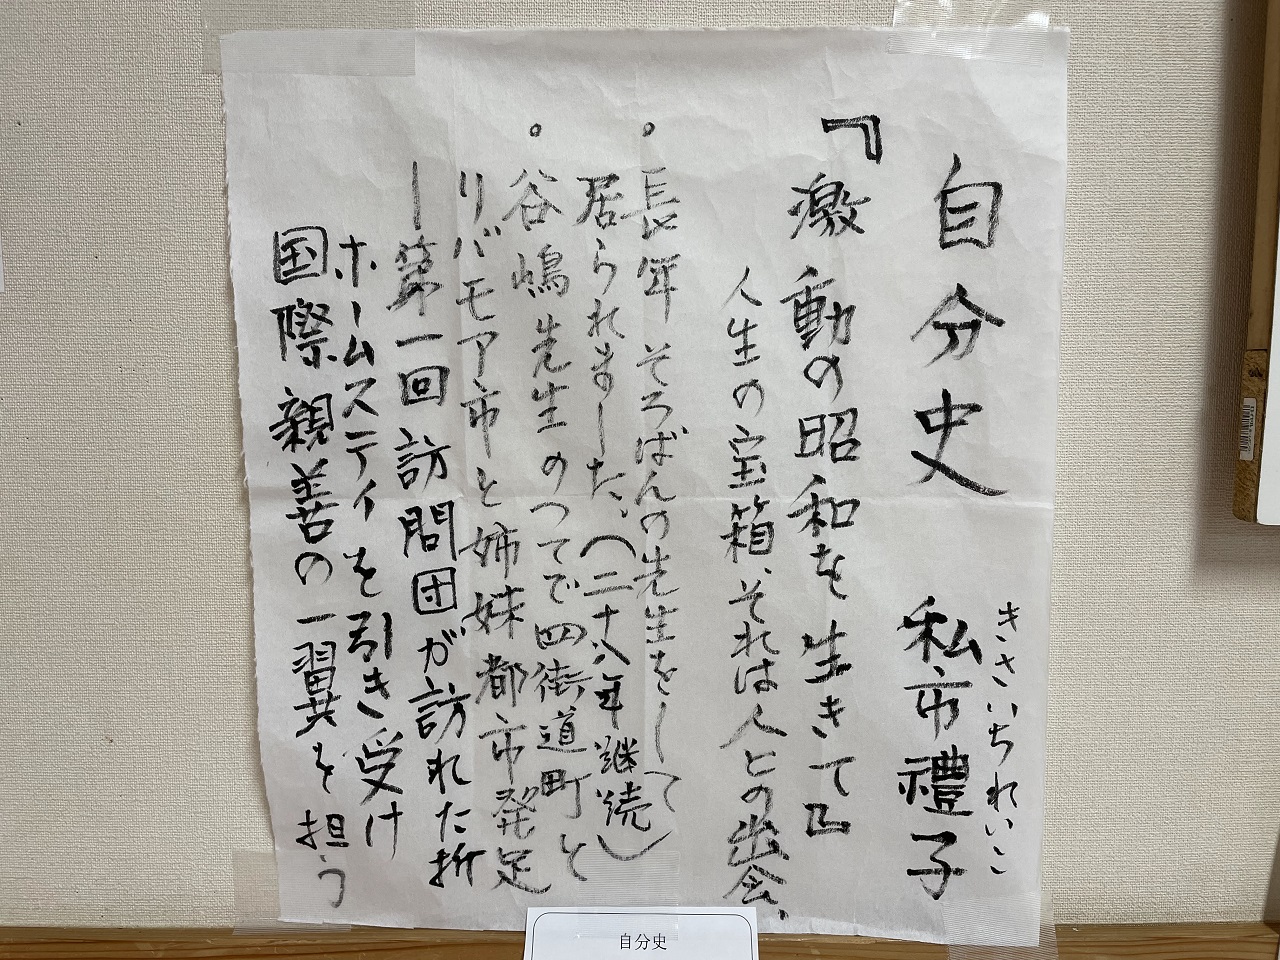 自分史
きさいちれいこ
私市禮子
『激動の昭和を生きて』
人生の宝箱、それは人との出会、
。長年そろばんの先生をして
居られました、(二十八年継続)
。谷嶋先生のつてで四街道町と
リバモア市と姉妹都市発足
ー第一回訪問団が訪れた折
ホームスティを引き受け
国際親善の一翼を担う
自分史